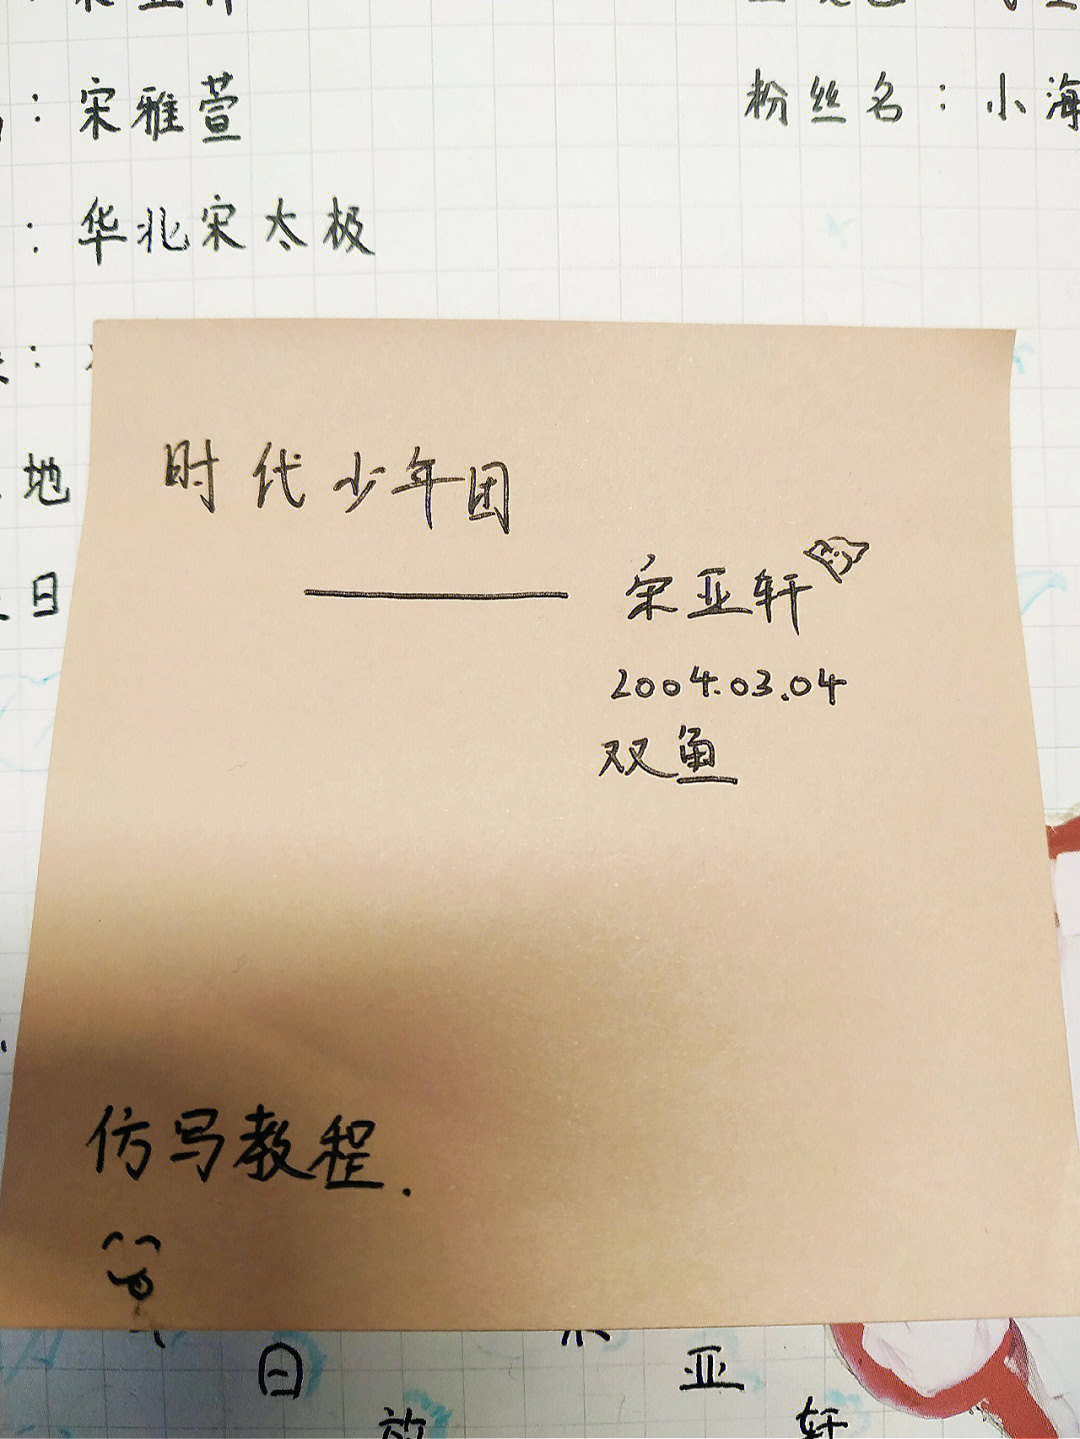 ：宋雅萱
粉丝名：小海
：华北宋太极
：
地
日
时代少年团
——— 宋亚轩
2004.03.04
双鱼
仿写教程.
日
亚
放
轩